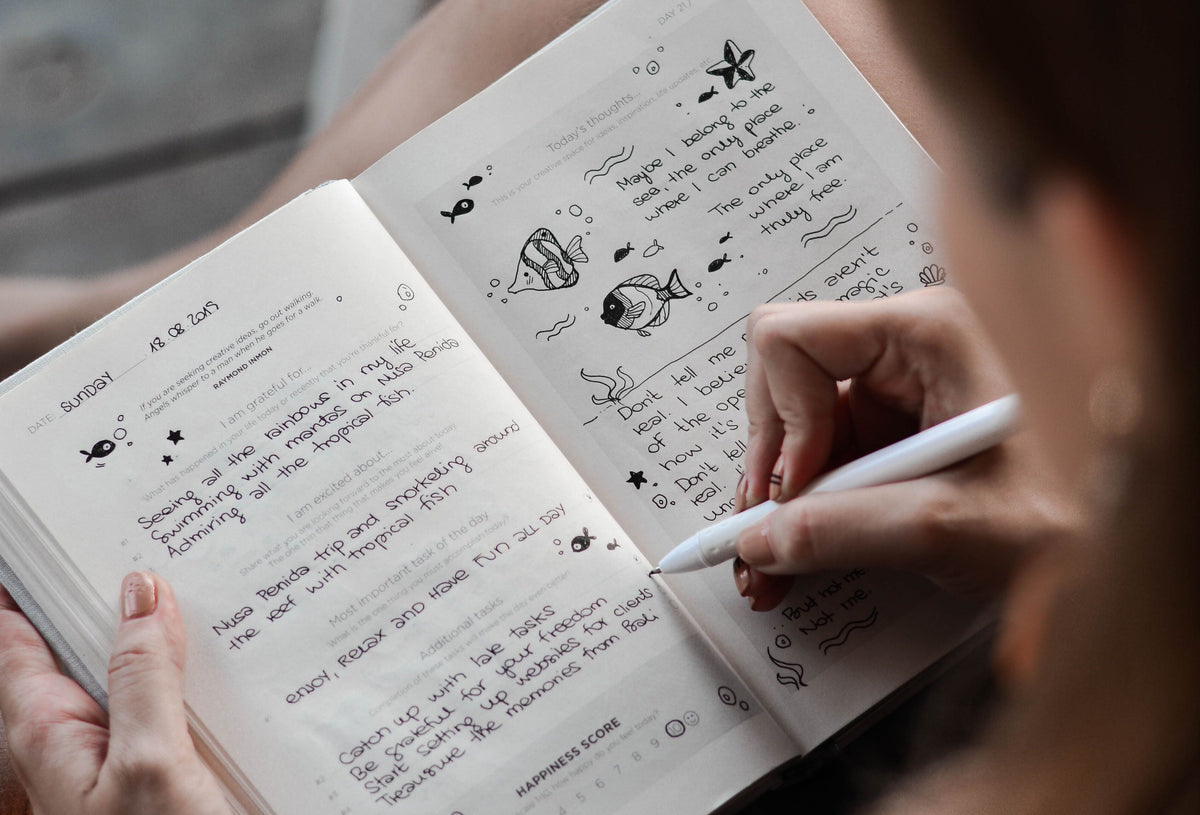 DATE: SUNDAY 18.08.2019
If you are seeking creative ideas, go out walking.
Angels whisper to a man when he goes for a walk.
RAYMOND INMON
I am grateful for...
What has happened in your life today or recently that you're thankful for?
#1 Seeing all the rainbows in my life
#2 Swimming with mantas on Nusa Penida
Admiring all the tropical fish.
I am excited about...
Share what you are looking forward to the most about today
The one thing that makes you feel alive!
Nusa Penida trip and snorkeling around
the reef with tropical fish
Most important task of the day
What is the one thing you must accomplish today?
#1 ENJOY, RELAX AND HAVE FUN ALL DAY
Additional tasks
Completion of these tasks will make the day even better
#2 Catch up with late tasks
#3 Be grateful for your freedom
#4 Start setting up websites for clients
Treausure the memories from Bali
HAPPINESS SCORE
how happy do you feel today?
4 5 6 7 8 9 10
DAY 21/
Today's thoughts...
This is your creative space for ideas, inspiration, life updates, etc.
Maybe I belong to the
sea, the only place
where I can breathe.
The only place
where I am
thuly free.
aren't
magic
Don't tell me
real. I believe
of the
how it's
Don't tell
real.
But not me.
Not me.